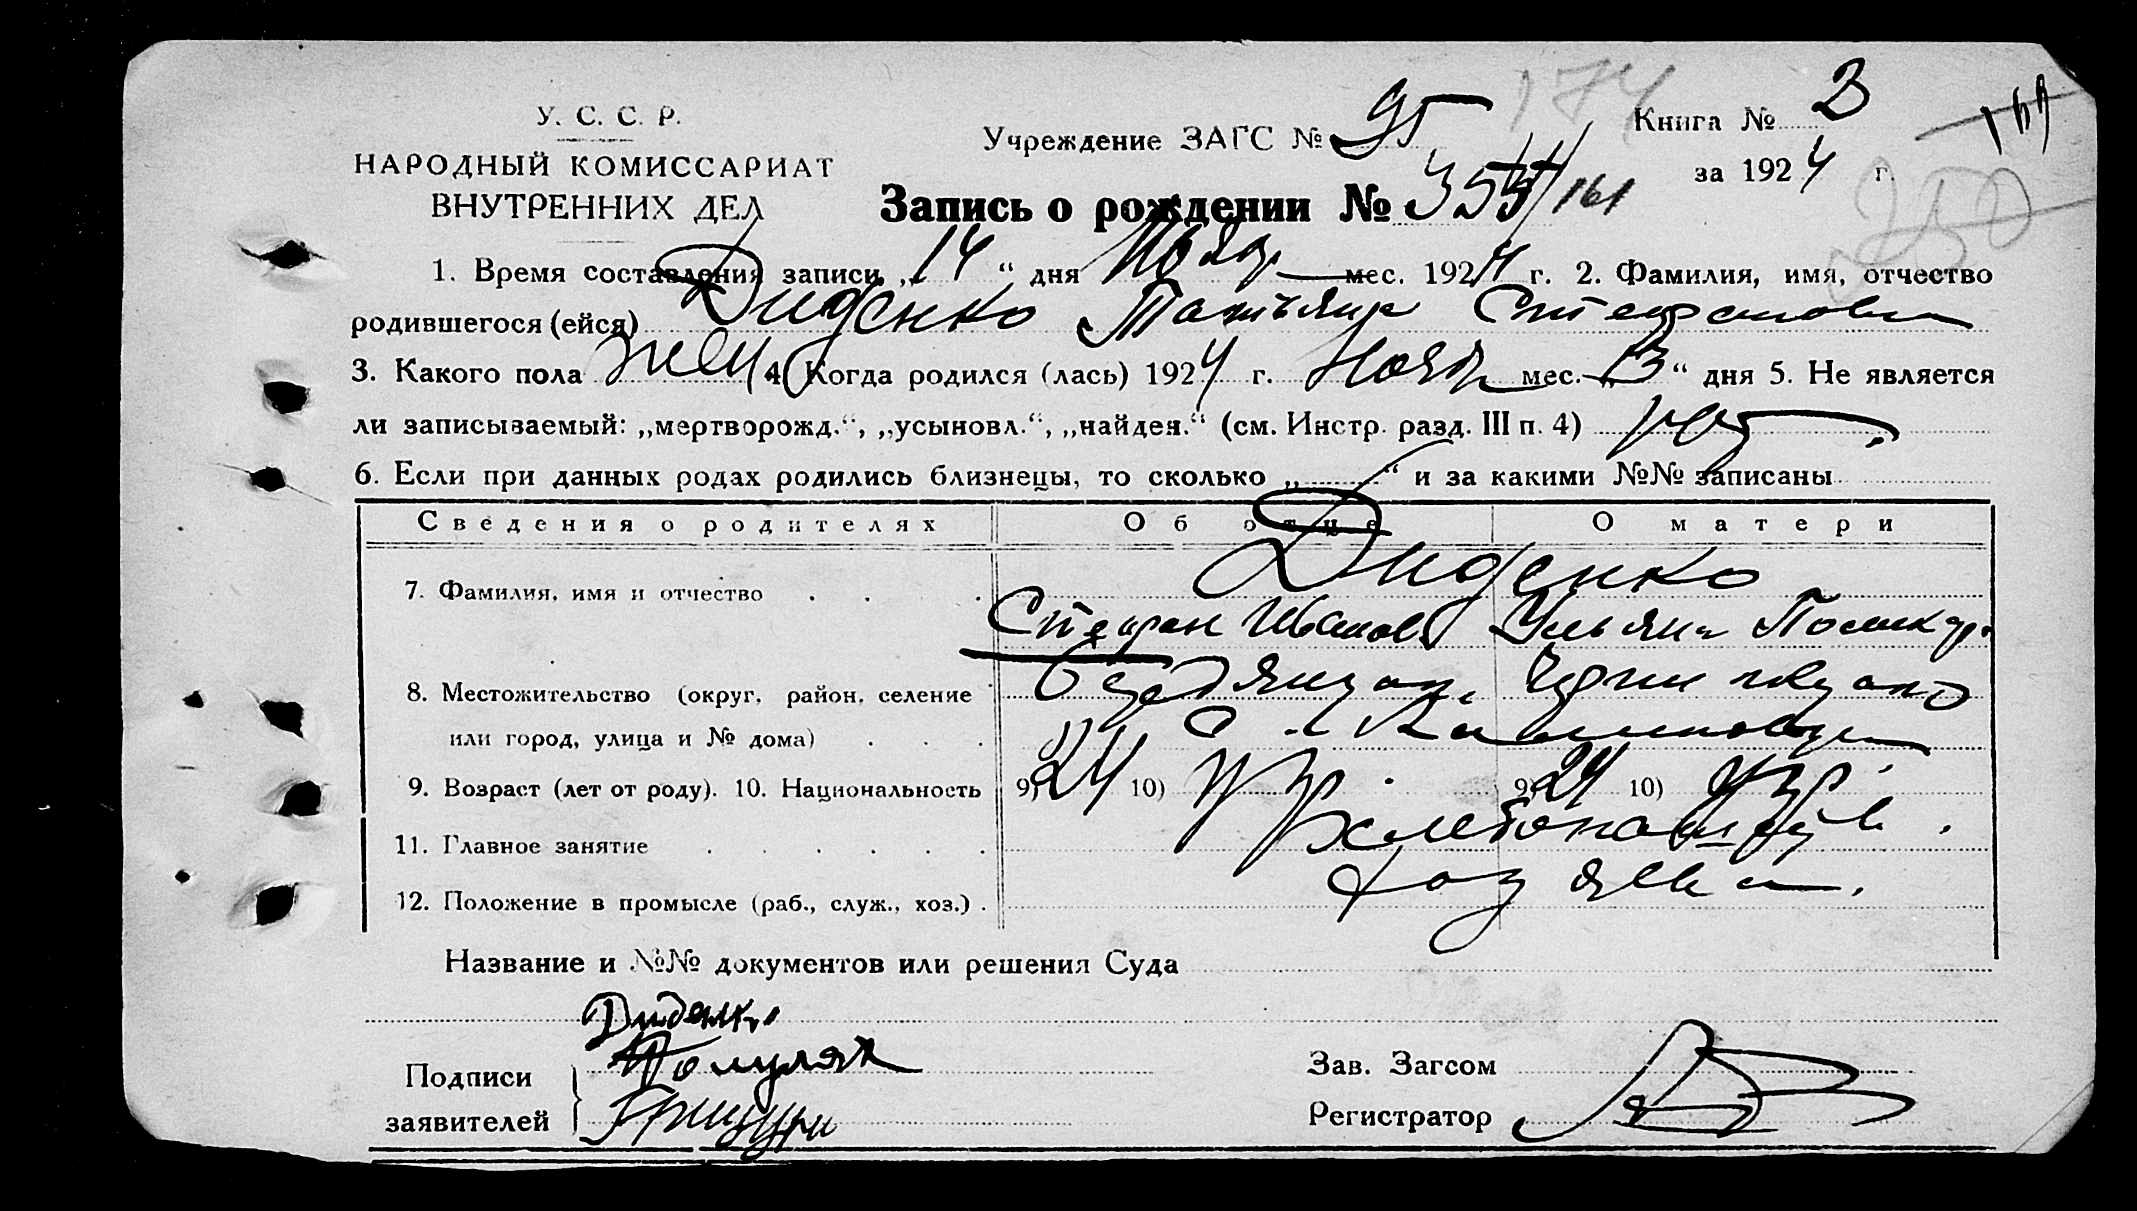 174
У. С. С. Р.
НАРОДНЫЙ КОМИССАРИАТ
ВНУТРЕННИХ ДЕЛ
Учреждение ЗАГС № 95
Книга № 3
за 1924 г.
250
Запись о рождении № 161
1. Время составления записи „14“ дня Нояб мес. 1924 г. 2. Фамилия, имя, отчество
родившегося (ейся) Диденко Татьяна Стефановна
3. Какого пола жен 4. Когда родился (лась) 1924 г. Нояб мес. „13“ дня 5. Не является
ли записываемый: „мертворожд.“, „усыновл.“, „найден.“ (см. Инстр. разд. III п. 4) нет.
6. Если при данных родах родились близнецы, то сколько „ “ и за какими №№ записаны
Сведения о родителях Об отце О матери
7. Фамилия, имя и отчество Диденко
Стефан Иванов. Ульяна Поликар.
8. Местожительство (округ, район, селение
или город, улица и № дома) с.
9. Возраст (лет от роду). 10. Национальность 9) 24 10) укр. 9) 24 10) укр.
11. Главное занятие хлебопашцы.
12. Положение в промысле (раб., служ., хоз.) хозяева.
Название и №№ документов или решения Суда
Диденко
Подписи
заявителей
Зав. Загсом
Регистратор